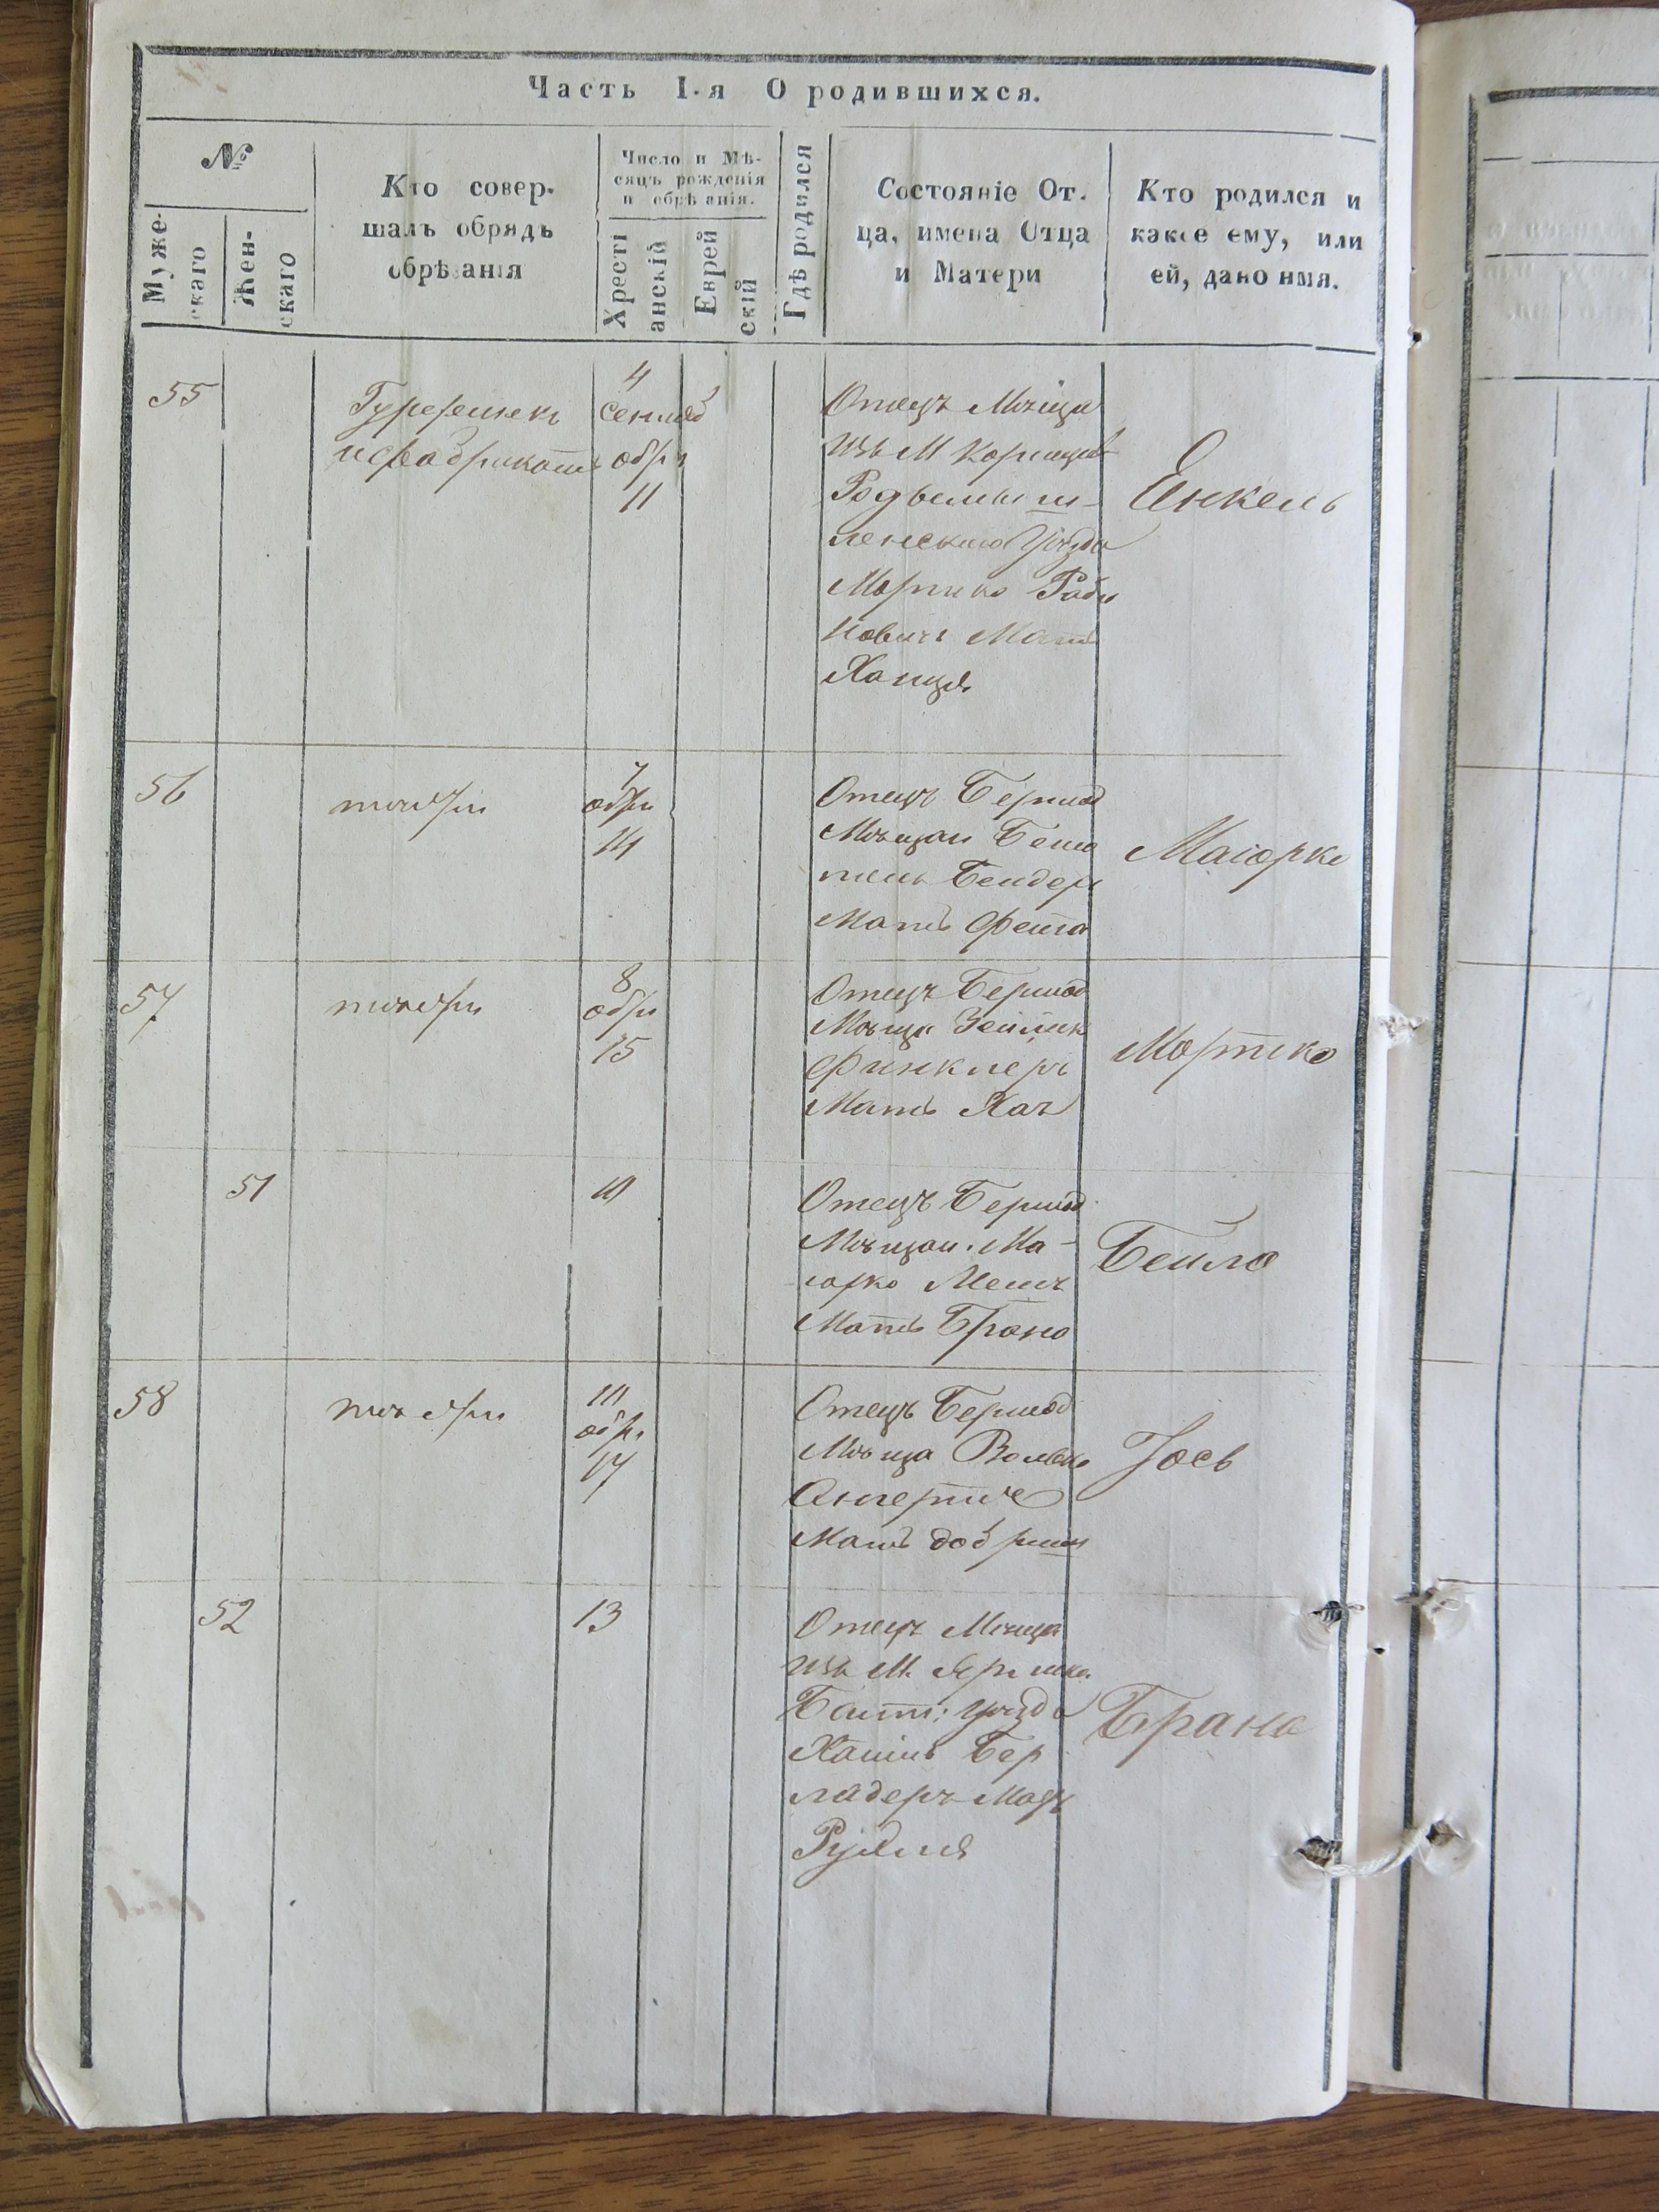 Часть I-я О родившихся.
№
Муже-
скаго
Жен-
скаго
Кто совер-
шалъ обрядъ
обрѣзанія
Число и Мѣ-
сяцъ рожденія
и обрѣзанія.
Христі
анскій
Еврей
скій
Гдѣ родился
Состояніе От-
ца, имена Отца
и Матери
Кто родился и
какое ему, или
ей, дано имя.
55
4
обрѣ
11
Отецъ Мѣща
изъ М
Уѣзда
Мортко Раби
новичъ Мать
Ханця
Енкель
56
тотъ же
7
обрѣ
14
Отецъ Бершад
Мѣщан
Бендер
Мать Фейга
Маіорко
57
тотъ же
8
обрѣ
15
Отецъ Бершад
Мѣща Зейлик
Финклеръ
Мать Хая
Мортко
51
10
Отецъ Бершад
Мѣщан. Ма-
іорко
Мать Брана
Бейла
58
тотъ же
10
обрѣ
17
Отецъ Бершад
Мѣща Волько
Мать Добриш
Іось
52
13
Отецъ Мѣща
изъ М.
Балт: уѣзда
Хаимъ Бер
ладеръ Мать
Брана